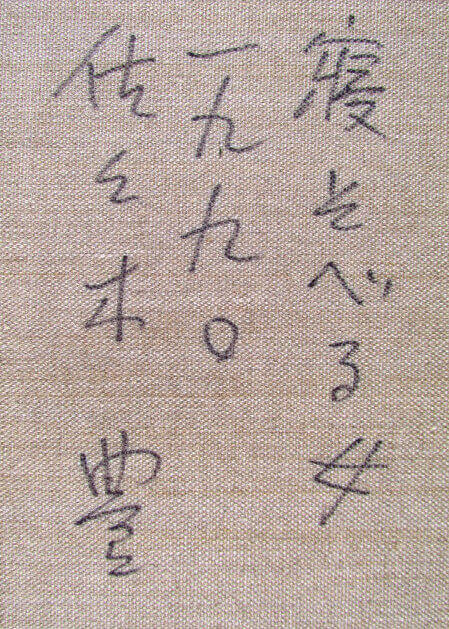 寝そべる女
一九九〇
佐々木 豊